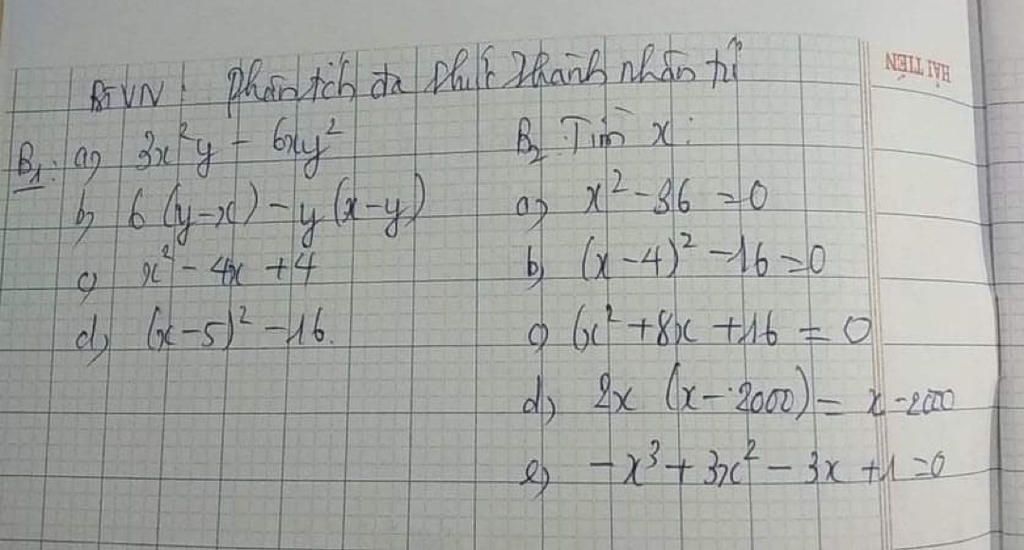 BTVN: Phân tích đa thức thành nhân tử
HẢI TIẾN
B1: a) 3x²y - 6xy²
b) 6(y-x) - y(x-y)
c) x² - 4x + 4
d) (x-5)² - 16.
B2 Tìm x:
a) x² - 36 = 0
b) (x-4)² - 16 = 0
c) x² + 8x + 16 = 0
d) 2x (x - 2000) = x - 2000
e) -x³ + 3x² - 3x + 1 = 0